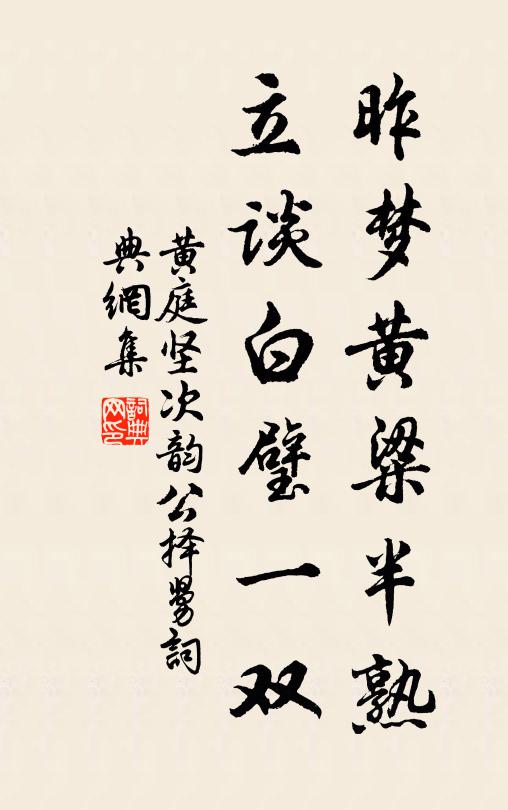 昨梦黄粱半熟
立谈白璧一双
黄庭坚次韵公择舅詞
典網集
詞典
网印